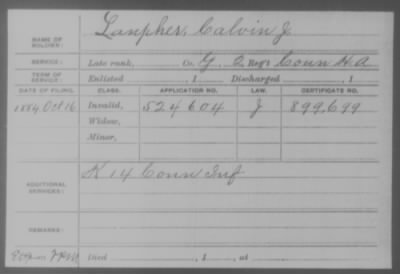 NAME OF SOLDIER: Lanpher, Calvin J.
SERVICE: Late rank, Co. G. 2 Reg't Conn H A
TERM OF SERVICE: Enlisted , 1 Discharged , 1
DATE OF FILING. CLASS. APPLICATION NO. LAW. CERTIFICATE NO.
1884 Oct 16 Invalid, 524604 J 899,699
Widow,
Minor,
ADDITIONAL SERVICES: K 14 Conn Inf
REMARKS:
Died , 1 , at